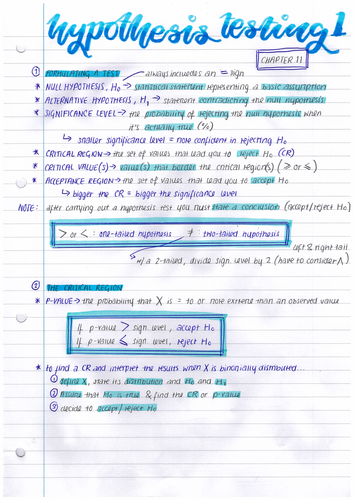 hypothesis testing 1
CHAPTER 11
① FORMULATING A TEST
always includes an = sign
* NULL HYPOTHESIS, H₀ → statistical statement representing a basic assumption
* ALTERNATIVE HYPOTHESIS, H₁ → statement contradicting the null hypothesis
* SIGNIFICANCE LEVEL → the probability of rejecting the null hypothesis when
it's actually true (%)
↳ smaller significance level = more confident in rejecting H₀
* CRITICAL REGION → the set of values that lead you to reject H₀ (CR)
* CRITICAL VALUE(S) → value(s) that border the critical region(s) (≥ or ≤)
* ACCEPTANCE REGION → the set of values that lead you to accept H₀
↳ bigger the CR = bigger the significance level
NOTE: after carrying out a hypothesis test you must state a conclusion (accept/reject H₀)
> or < : one-tailed hypothesis ≠ : two-tailed hypothesis
left & right tail
↳ w/ a 2-tailed, divide sign level by 2 (have to consider ^)
② THE CRITICAL REGION
* P-VALUE → the probability that X is = to or more extreme than an observed value
if p-value > sign level, accept H₀
if p-value ≤ sign level, reject H₀
* to find a CR and interpret the results when X is binomially distributed...
① define X, state its distribution and H₀ and H₁
② Assume that H₀ is true & find the CR or p-value
③ decide to accept/reject H₀